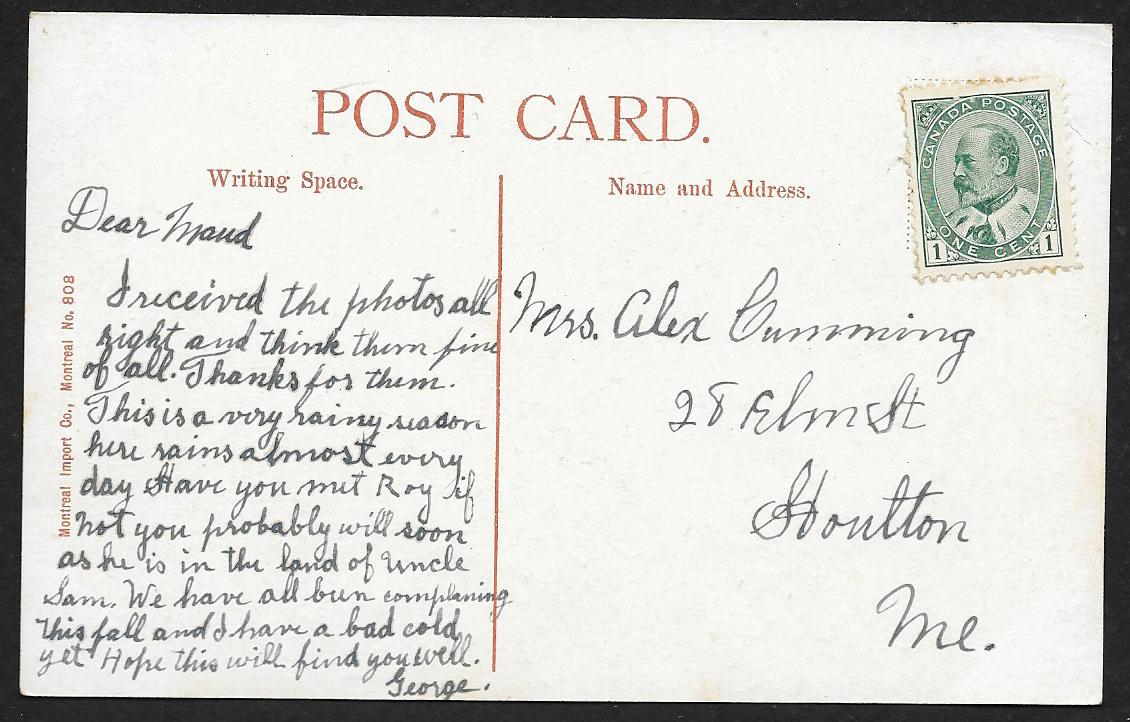 POST CARD.
Writing Space.
Name and Address.
CANADA POSTAGE
1 ONE CENT 1
Montreal Import Co., Montreal No. 808
Dear Maud
I received the photos all
right and think them fine
of all. Thanks for them.
This is a very rainy season
here rains almost every
day Have you met Roy if
not you probably will soon
as he is in the land of Uncle
Sam. We have all been complaning
this fall and I have a bad cold
yet Hope this will find you well.
George.
Mrs. Alex Cumming
28 Elm St
Houlton
Me.